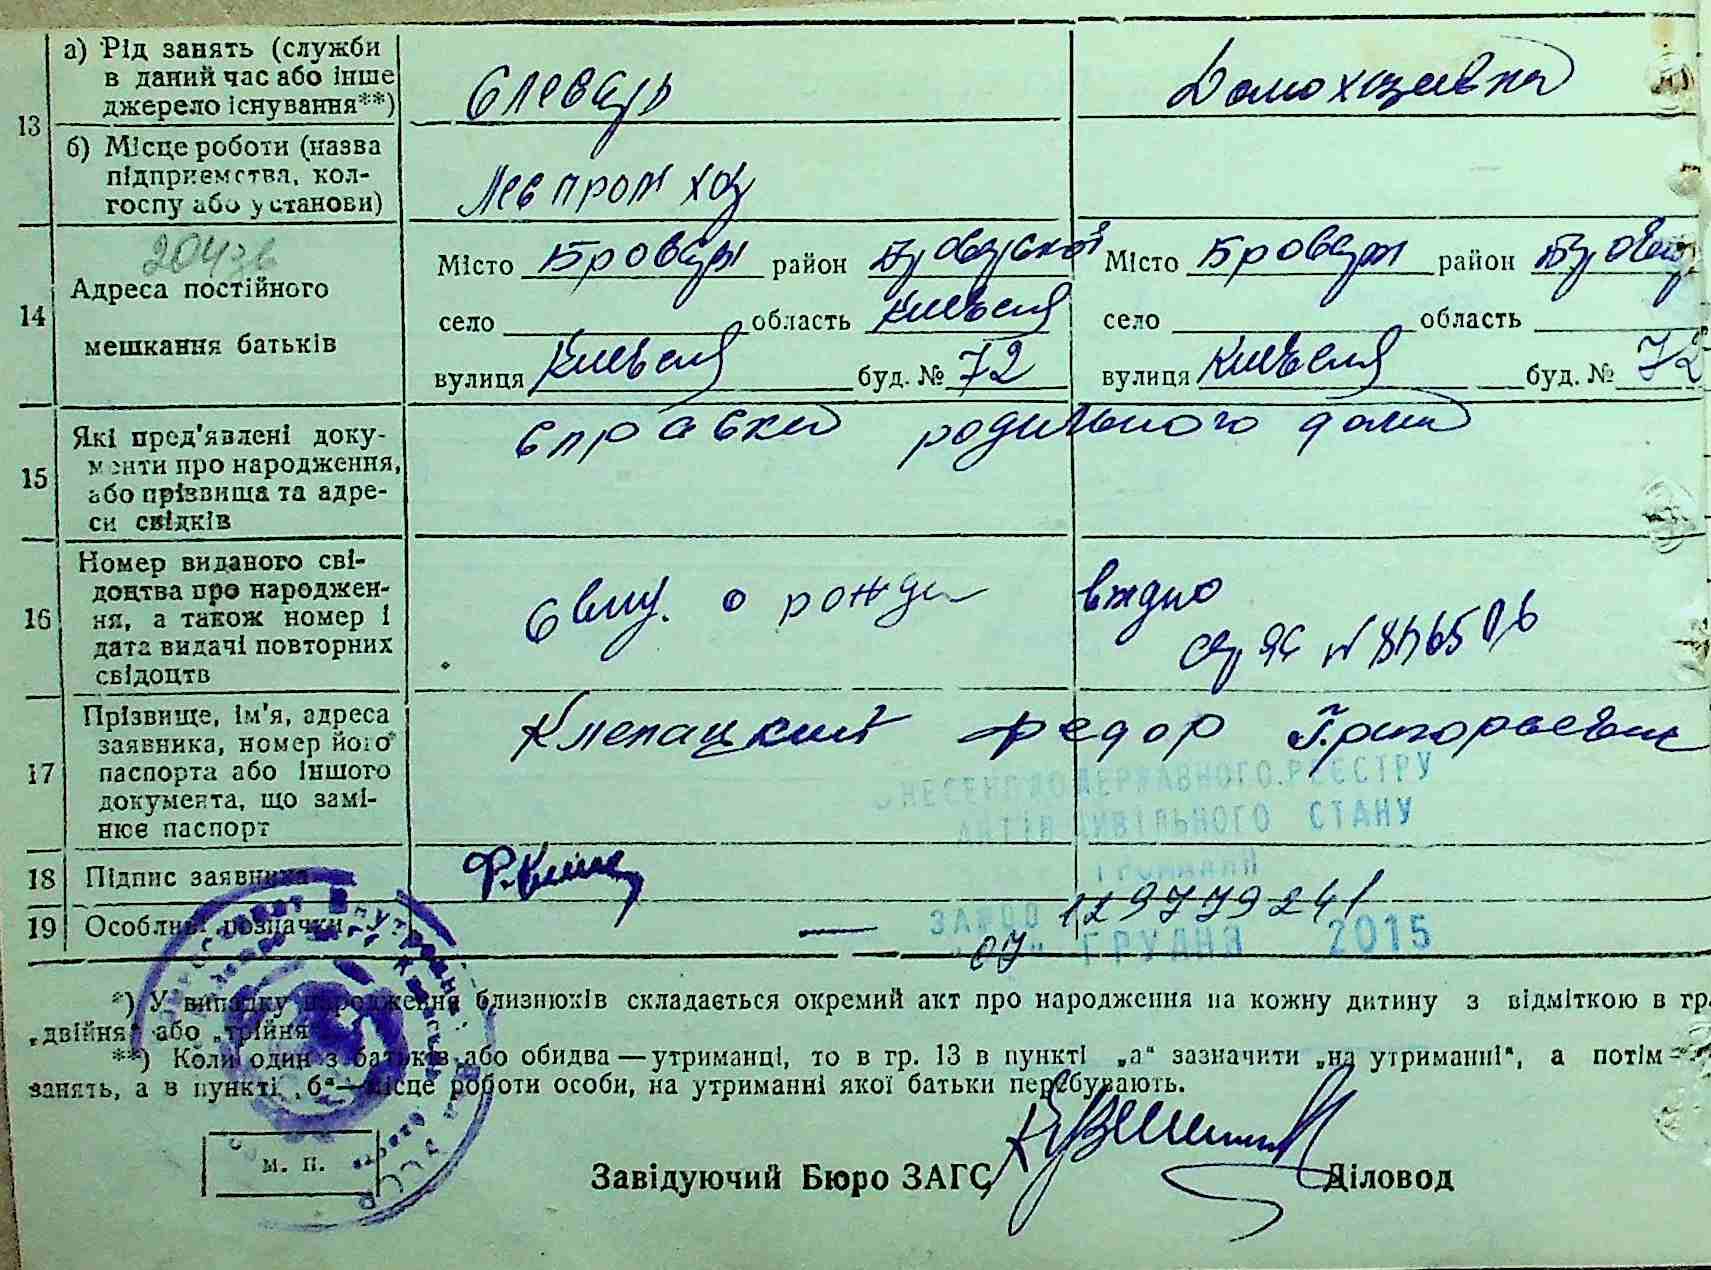 13
а) Рід занять (служби
в даний час або інше
джерело існування**)
Слесарь
Домохозяйка
б) Місце роботи (назва
підприємства, кол-
госпу або установи)
Леспромхоз
14
Адреса постійного
мешкання батьків
Місто Бровары район Броварской
село область Киевская
вулиця Киевская буд. № 72
Місто Бровары район
село область
вулиця Киевская буд. № 72
15
Які пред'явлені доку-
менти про народження,
або прізвища та адре-
си свідків
Справка родильного дома
16
Номер виданого сві-
доцтва про народжен-
ня, а також номер і
дата видачі повторних
свідоцтв
о рожд
17
Прізвище, ім'я, адреса
заявника, номер його
паспорта або іншого
документа, що замі-
нює паспорт
Клепацкий Федор Григорьевич
ВНЕСЕНО ДО ДЕРЖАВНОГО РЕЄСТРУ
АКТІВ ЦИВІЛЬНОГО СТАНУ
ГРОМАДЯН
18 Підпис заявника
19 Особливі позначки —
ЗА №00 129779241
07 ГРУДНЯ 2015
*) У випадку народження близнюків складається окремий акт про народження на кожну дитину з відміткою в гр.
„двійня“ або „трійня“
**) Коли один з батьків або обидва — утриманці, то в гр. 13 в пункті „а“ зазначити „на утриманні“, а потім
занять, а в пункті „б“ — місце роботи особи, на утриманні якої батьки перебувають.
м. п.
Завідуючий Бюро ЗАГС Діловод